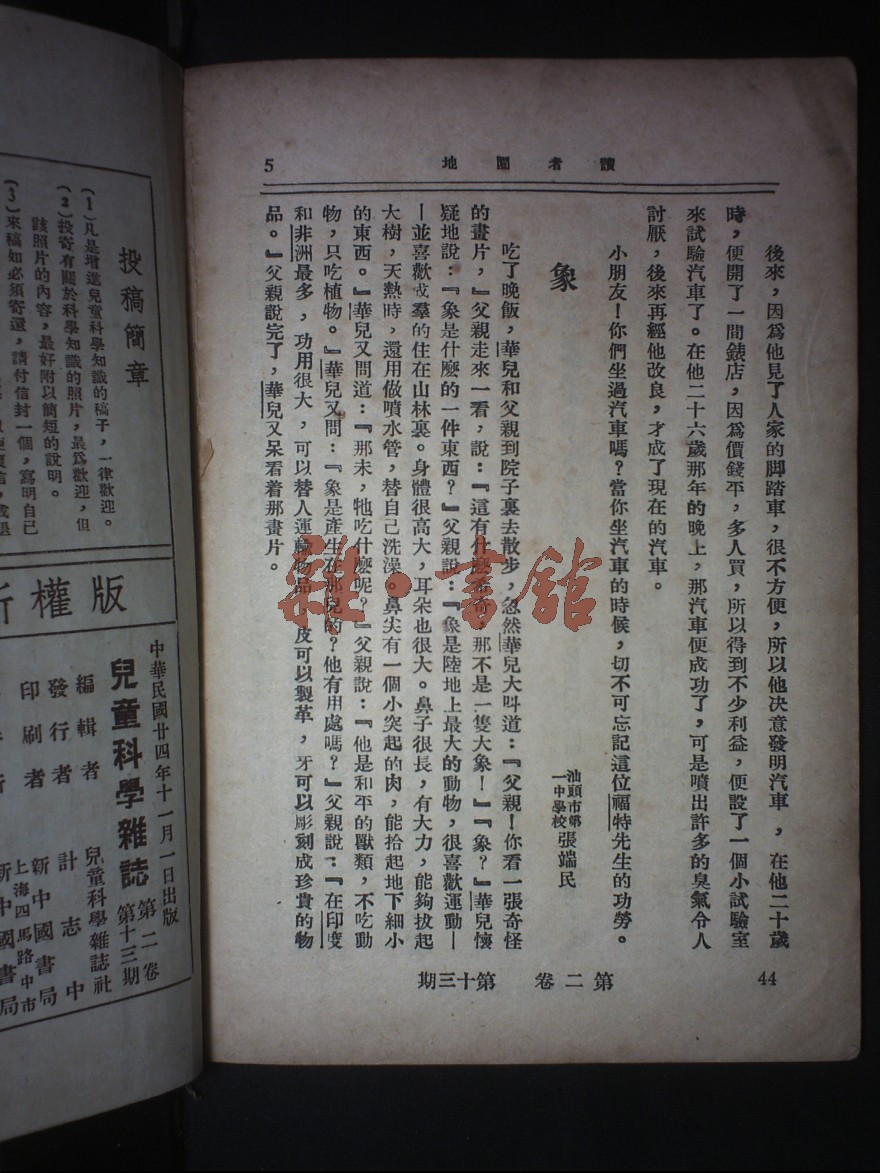 讀者園地
5
後來，因爲他見了人家的脚踏車，很不方便，所以他決意發明汽車，在他二十歲
時，便開了一間錶店，因爲價錢平，多人買，所以得到不少利益，便設了一個小試驗室
來試驗汽車了。在他二十六歲那年的晚上，那汽車便成功了，可是噴出許多的臭氣令人
討厭，後來再經他改良，才成了現在的汽車。
小朋友！你們坐過汽車嗎？當你坐汽車的時候，切不可忘記這位福特先生的功勞。
象
汕頭市第一中學校 張端民
吃了晚飯，華兒和父親到院子裏去散步，忽然華兒大叫道：『父親！你看一張奇怪
的畫片，』父親走來一看，說：『這有什麼希奇，那不是一隻大象！』『象？』華兒懷
疑地說：『象是什麼的一件東西？』父親說：『象是陸地上最大的動物，很喜歡運動—
—並喜歡成羣的住在山林裏。身體很高大，耳朵也很大。鼻子很長，有大力，能夠拔起
大樹，天熱時，還用做噴水管，替自己洗澡。鼻尖有一個小突起的肉，能拾起地下細小
的東西。』華兒又問道：『那末，牠吃什麼呢？』父親說：『他是和平的獸類，不吃動
物，只吃植物。』華兒又問：『象是產生在那兒的？他有用處嗎？』父親說：『在印度
和非洲最多，功用很大，可以替人運輸物品，皮可以製革，牙可以彫刻成珍貴的物
品。』父親說完了，華兒又呆看着那畫片。
第二卷 第十三期
44
投稿簡章
(1)凡是增進兒童科學知識的稿子，一律歡迎。
(2)投寄有關於科學知識的照片，最爲歡迎，但
該照片的內容，最好附以簡短的說明。
(3)來稿如必須寄還，請付信封一個，寫明自己
版權所
中華民國廿四年十一月一日出版
兒童科學雜誌 第二卷 第十三期
編輯者 兒童科學雜誌社
發行者 計志中
印刷者 新中國書局
上海四馬路中市
新中國書局
雜·書館